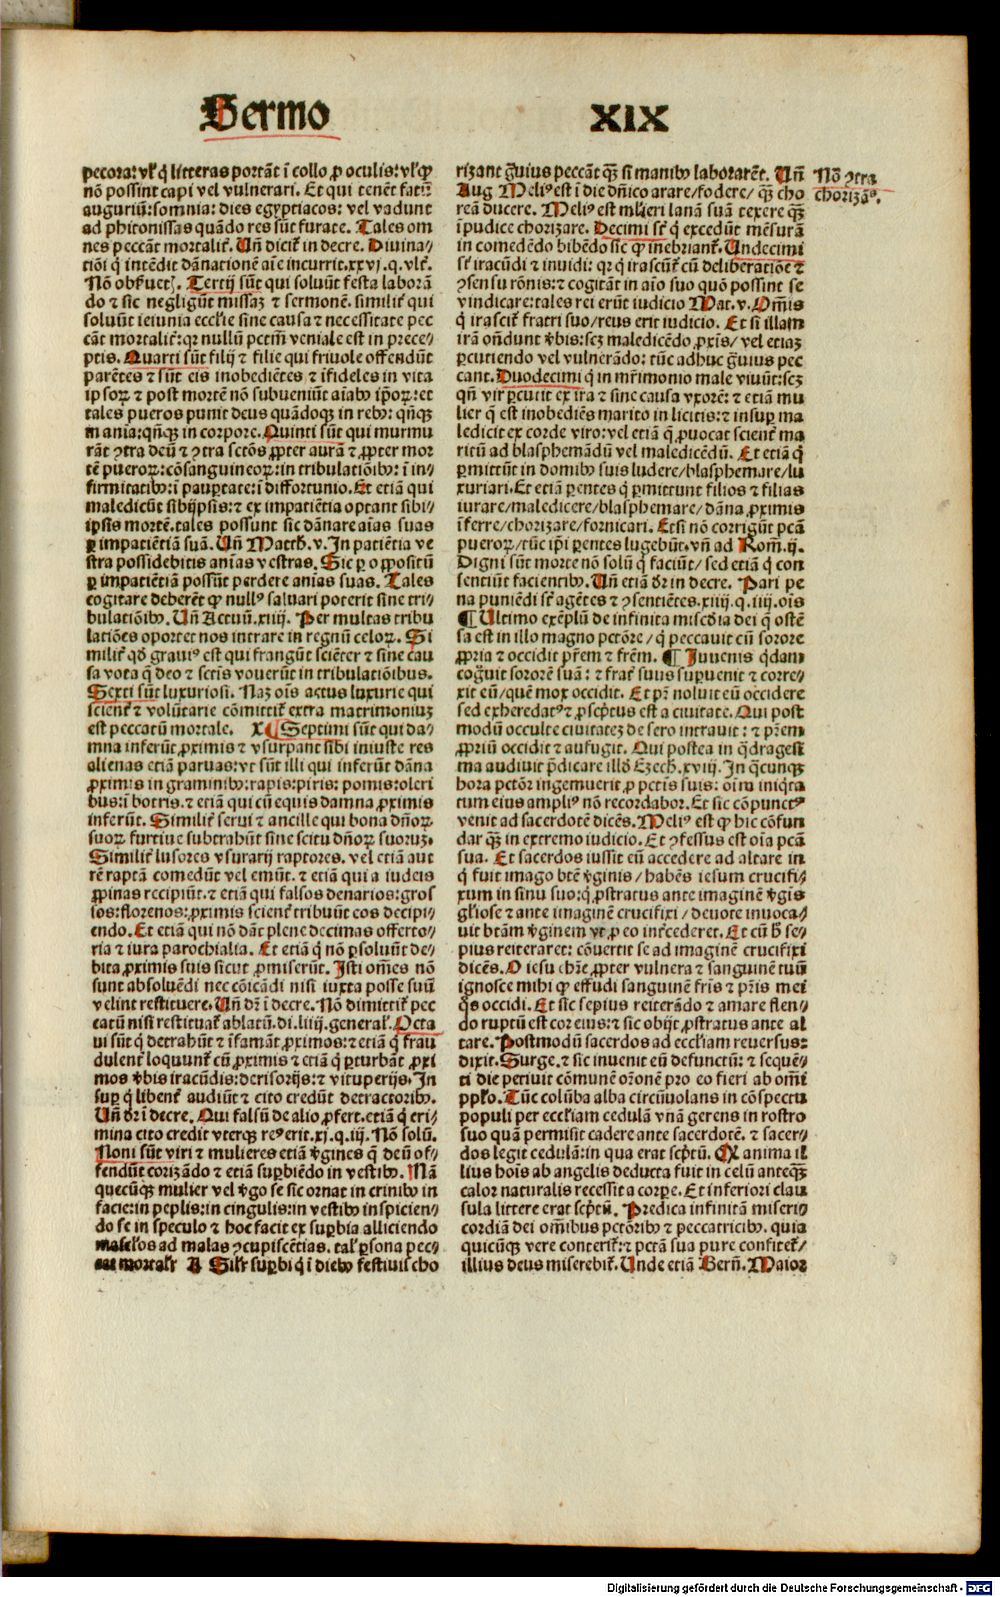 Sermo XIX
pecora: vl' q̇ litteras portāt ī collo ꝓ oculis: vl' ꝙ
nō possint capi vel vulnerari. Et qui tenēt fatū
auguriū: somnia: dies egyptiacos: vel vadunt
ad phitonissas quādo res sūt furate. Tales om
nes peccāt mortalit̄. Uñ dicit̄ in decre. Divina⸗
tiōi q̇ intēdit dānationē aīe incurrit. xxvj. q. vlt̄.
Nō obseruetꝭ. Tertij sūt qui soluūt festa laborā
do ⁊ sic negligūt missaꝫ ⁊ sermonē. similit̄ qui
soluūt ieiunia ecclīe sine causa ⁊ necessitate pec
cāt mortalit̄: qꝛ nullū pctm̄ veniale est in prece⸗
ptis. Quarti sūt filij ⁊ filie qui friuole offendūt
parētes ⁊ sūt eis inobediētes ⁊ īfideles in vita
ipsoꝝ ⁊ post mortē nō subueniūt aīabꝰ ip̄oꝝ: et
tales pueros punit deus quādoqꝫ in rebꝰ: qn̄qꝫ
in ania: qn̄qꝫ in corpore. Quinti sūt qui murmu
rāt ꝯtra deū ⁊ ꝯtra sctōs ꝓpter aurā ⁊ ꝓpter mor
tē pueroꝝ: cōsanguineoꝝ: in tribulatiōibꝰ: ī in⸗
firmitatibꝰ: ī paupertate: ī diffortunio. Et etiā qui
maledicūt sibijpsis: ⁊ ex impatiētia optant sibi⸗
ipsis mortē. tales possunt sic dānare aīas suas
ꝑ impatiētiā suā. Uñ Matth. v. In patiētia ve
stra possidebitis anīas vestras. Sic ꝑ oppositū
ꝑ impatiētiā possūt perdere anīas suas. Tales
cogitare deberēt ꝙ nullꝰ saluari poterit sine tri⸗
bulatiōibꝰ. Uñ Actuū. xiiij. Per multas tribu
latiōes oportet nos intrare in regnū celoꝝ. Si
milit̄ qd̄ grauiꝰ est qui frangūt sciēter ⁊ sine cau
sa vota q̄ deo ⁊ sctīs vouerūt in tribulatiōibus.
Sexti sūt luxuriosi. Naꝫ oīs actus luxurie qui
scient̄ ⁊ volūtarie cōmittit̄ extra matrimoniuꝫ
est peccatū mortale. X ¶ Septimi sūt qui da⸗
mna inferūt ꝓximis ⁊ vsurpant sibi iniuste res
alienas etiā paruas: vt sūt illi qui inferūt dāna
ꝓximis in graminibꝰ: rapis: piris: pomis: oleri
bus: ī botris. ⁊ etiā qui cū equis damna ꝓximis
inferūt. Similit̄ serui ⁊ ancille qui bona dn̄oꝝ
suoꝝ furtiue subtrahūt sine scitu dn̄oꝝ suoruꝫ.
Similit̄ lusores vsurarij raptores. vel etiā aut
rē raptā comedūt vel emūt. ⁊ etiā qui a iudeis
ꝓpinas recipiūt. ⁊ etiā qui falsos denarios: gros
sos: florenos: ꝓximis scient̄ tribuūt eos decipi⸗
endo. Et etiā qui nō dāt plene decimas offerto⸗
ria ⁊ iura parochialia. Et etiā q̇ nō ꝑsoluūt de⸗
bita ꝓximis suis sicut ꝓmiserūt. Isti om̄es nō
sunt absoluēdi nec cōicādi nisi iuxta posse suū
velint restituere. Uñ dr̄ ī decre. Nō dimittit̄ pec
catū nisi restituat̄ ablatū. di. liiij. general'. Octa
ui sūt q̇ detrahūt ⁊ īfamāt ꝓximos: ⁊ etiā q̇ frau
dulent̄ loquunt̄ cū ꝓximis ⁊ etiā q̇ ꝑturbāt ꝓxi
mos v̄bis iracūdis: derisorijs: ⁊ vituperijs. In
suꝑ q̇ libent̄ audiūt ⁊ cito credūt detractoribꝰ.
Uñ dr̄ ī decre. Qui falsū de alio ꝓfert. etiā q̇ cri⸗
mina cito credit vterqꝫ reꝰ erit. xj. q. iij. Nō solū.
Noni sūt viri ⁊ mulieres etiā v̄gines q̇ deū of⸗
fendūt corizādo ⁊ etiā suꝑbiēdo in vestibꝰ. Nā
quecūqꝫ mulier vel v̄go se sic ornat in crinibꝰ in
facie: in peplis: in cingulis: in vestibꝰ inspicien⸗
do se in speculo ⁊ hoc facit ex suꝑbia alliciendo
masclos ad malas ꝯcupiscētias. tal' ꝑsona pec⸗
cat mortalr̄ A Sil'r suꝑbi q̇ ī diebꝰ festiuis cho
rizant ḡuius peccāt q̄ꝫ si manibꝰ laborarēt. Uñ
Aug Meliꝰ est ī die dn̄ico arare/fodere/ q̄ꝫ cho
reā ducere. Meliꝰ est ml̄ieri lanā suā texere q̄ꝫ
īpudice chorizare. Decimi st̄ q̇ excedūt mēsurā
in comedēdo bibēdo sic ꝙ inebriant̄. Undecimi
st̄ iracūdi ⁊ inuidi: qꝛ q̇ irascūt̄ cū deliberatiōe ⁊
ꝯsensu rōnis: ⁊ cogitāt in aīo suo quō possint se
vindicare: tales rei erūt iudicio Mat. v. Om̄is
q̇ irascit̄ fratri suo/reus erit iudicio. Et si illam
irā on̄dunt v̄bis: scꝫ maledicēdo ꝓxīs/ vel etiaꝫ
ꝑcutiendo vel vulnerādo: tūc adhuc ḡuius pec
cant. Duodecimi q̇ in mr̄imonio male viuūt: scꝫ
qn̄ vir ꝑcutit ex ira ⁊ sine causa vxorē: ⁊ etiā mu
lier q̄ est inobediēs marito in licitis: ⁊ insuꝑ ma
ledicit ex corde viro: vel etiā q̄ ꝓuocat scient̄ ma
ritū ad blasphemādū vel maledicēdū. Et etiā q̇
ꝑmittūt in domibꝰ suis ludere/blasphemare/lu
xuriari. Et etiā ꝑentes q̇ ꝑmittunt filios ⁊ filias
iurare/maledicere/blasphemare/dāna ꝓximis
īferre/chorizare/fornicari. Etsi nō corrigūt pctā
pueroꝝ/tūc ip̄i ꝑentes lugebūt. vn̄ ad Rom. ij.
Digni sūt morte nō solū q̇ faciūt/ sed etiā q̇ con
sentiūt facientibꝰ. Uñ etiā dr̄ in decre. Pari pe
na puniēdi st̄ agētes ⁊ ꝯsentiētes. xiiij. q. iiij. oīs
¶ Ultimo exēplū de infinita misc̄dia dei q̄ ostē
sa est in illo magno pctōre/ q̇ peccauit cū sorore
ꝓpria ⁊ occidit pr̄em ⁊ fr̄em. ¶ Iuuenis q̇dam
cogūit sororē suā: ⁊ frat̄ suus suꝑuenit ⁊ corre⸗
xit eū/quē mox occidit. Et pr̄ noluit eū occidere
sed exheredatꝰ ⁊ ꝓscptus est a ciuitate. Qui post
modū occulte ciuitateꝫ de sero intrauit: ⁊ pr̄em
ꝓpriū occidit ⁊ aufugit. Qui postea in q̇dragesi
ma audiuit p̄dicare illd̄ Ezech. xviij. In q̄cunqꝫ
hora pctōr ingemuerit ꝓ pctīs suis: oīm iniq̇ta
tum eius ampliꝰ nō recordabor. Et sic cōpunctꝰ
venit ad sacerdotē dicēs. Meliꝰ est ꝙ hic cōfun
dar q̄ꝫ in extremo iudicio. Et ꝯfessus est oīa pctā
sua. Et sacerdos iussit eū accedere ad altare in
q̇ fuit imago btē v̄ginis/ habēs iesum crucifi⸗
xum in sinu suo: q̇ ꝓstratus ante imaginē v̄gīs
gl'iose ⁊ ante imaginē crucifixi/ deuote inuoca⸗
uit btām v̄ginem vt ꝓ eo int̄cederet. Et cū h̄ se⸗
pius reiteraret: cōuertit se ad imaginē crucifixi
dicēs. O iesu chr̄e ꝓpter vulnera ⁊ sanguinē tuū
ignosce mihi ꝙ effudi sanguinē fr̄is ⁊ pr̄is mei
q̄s occidi. Et sic sepius reiterādo ⁊ amare flen⸗
do ruptū est cor eius: ⁊ sic obijt ꝓstratus ante al
tare. Postmodū sacerdos ad ecclīam reuersus:
dixit. Surge. ⁊ sic inuenit eū defunctū: ⁊ sequē⸗
ti die petiuit cōmunē or̄onē pro eo fieri ab om̄i
pp̄lo. Tūc colūba alba circūuolans in cōspectu
populi per ecclīam cedulā vnā gerens in rostro
suo quā permisit cadere ante sacerdotē. ⁊ sacer⸗
dos legit cedulā: in qua erat scptū. Q anima il
lius hoīs ab angelis deducta fuit in celū anteqꝫ
calor naturalis recessit a corꝑe. Et inferiori clau
sula littere erat scptū. Predica infinitā miseri⸗
cordiā dei om̄ibus pctōribꝰ ⁊ peccatricibꝰ. quia
quicūqꝫ vere conterit̄: ⁊ pctā sua pure confitet̄/
illius deus miserebit̄. Unde etiā Bern̄. Maior
Nō ꝯtra
chorizāꝭ.
Digitalisierung gefördert durch die Deutsche Forschungsgemeinschaft - DFG